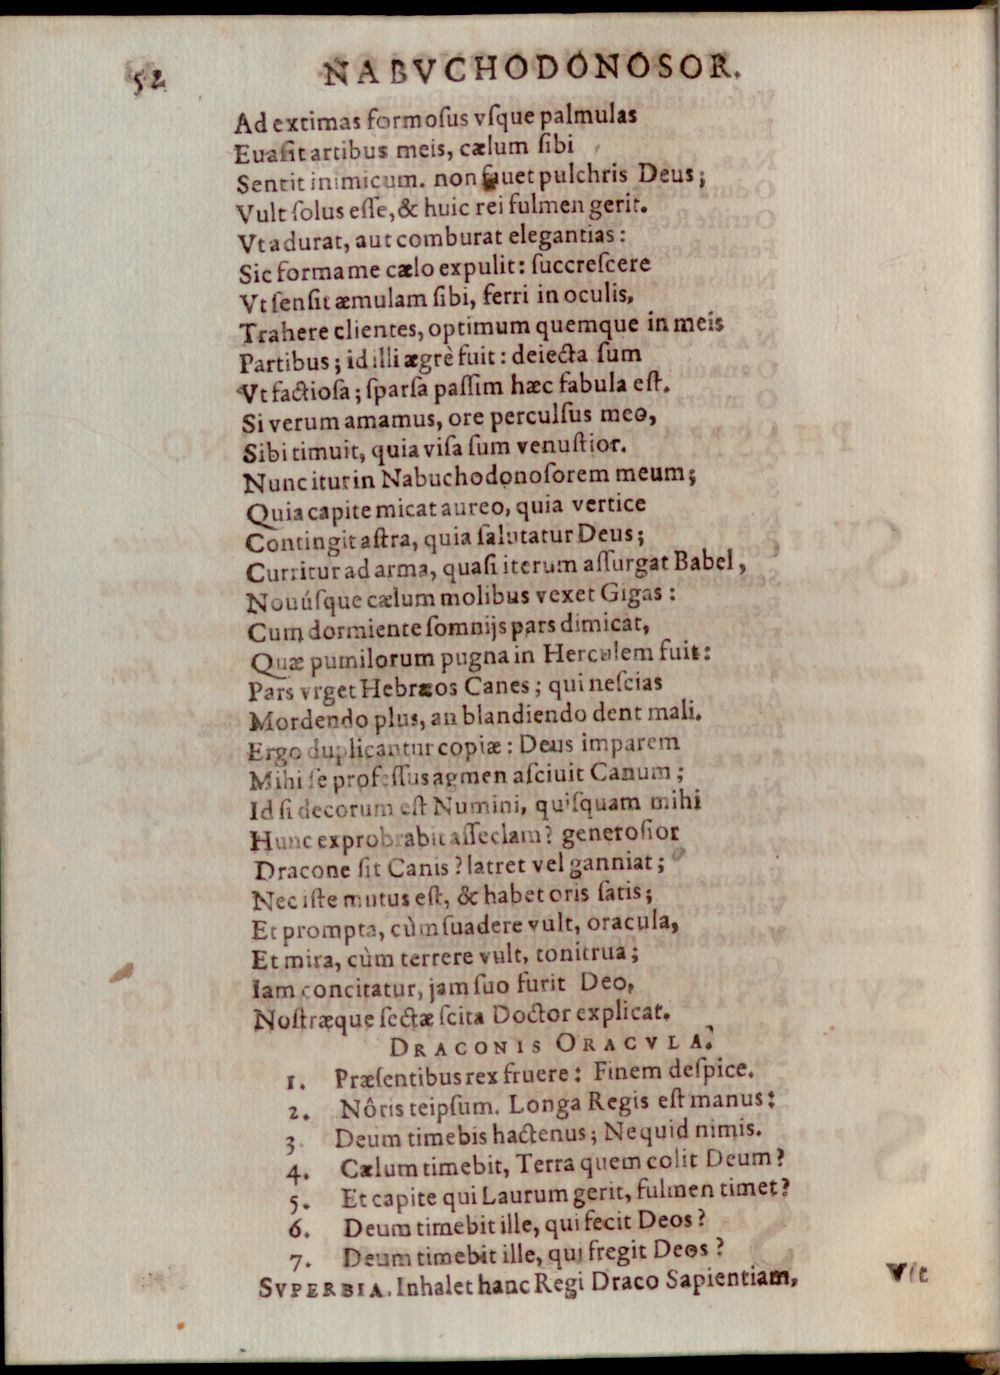 52 NABVCHODONOSOR.
Ad extimas formoſus vſque palmulas
Euaſit artibus meis, cælum ſibi
Sentit inimicum. non fauet pulchris Deus;
Vult ſolus eſſe, & huic rei fulmen gerit.
Vt adurat, aut comburat elegantias:
Sic forma me cælo expulit: ſuccreſcere
Vt ſenſit æmulam ſibi, ferri in oculis,
Trahere clientes, optimum quemque in meis
Partibus; id illi ægrè fuit: deiecta ſum
Vt factioſa; ſparſa paſſim hæc fabula eſt.
Si verum amamus, ore perculſus meo,
Sibi timuit, quia viſa ſum venuſtior.
Nunc itur in Nabuchodonoſorem meum;
Quia capite micat aureo, quia vertice
Contingit aſtra, quia ſalutatur Deus;
Curritur ad arma, quaſi iterum aſſurgat Babel,
Nouúſque cælum molibus vexet Gigas:
Cum dormiente ſomnijs pars dimicat,
Quæ pumilorum pugna in Herculem fuit:
Pars vrget Hebræos Canes; qui neſcias
Mordendo plus, an blandiendo dent mali.
Ergo duplicantur copiæ: Deus imparem
Mihi ſe profeſſus agmen aſciuit Canum;
Id ſi decorum eſt Numini, quiſquam mihi
Hunc exprobrabit aſſeclam? generoſior
Dracone ſit Canis? latret vel ganniat;
Nec iſte mutus eſt, & habet oris ſatis;
Et prompta, cùm ſuadere vult, oracula,
Et mira, cùm terrere vult, tonitrua;
Iam concitatur, jam ſuo furit Deo,
Noſtræque ſectæ ſcita Doctor explicat.
DRACONIS ORACVLA.
1. Præſentibus rex fruere: Finem deſpice.
2. Nôris teipſum. Longa Regis eſt manus:
3 Deum timebis hactenus; Ne quid nimis.
4. Cælum timebit, Terra quem colit Deum?
5. Et capite qui Laurum gerit, fulmen timet?
6. Deum timebit ille, qui fecit Deos?
7. Deum timebit ille, qui fregit Deos?
SVPERBIA. Inhalet hanc Regi Draco Sapientiam,
Vit